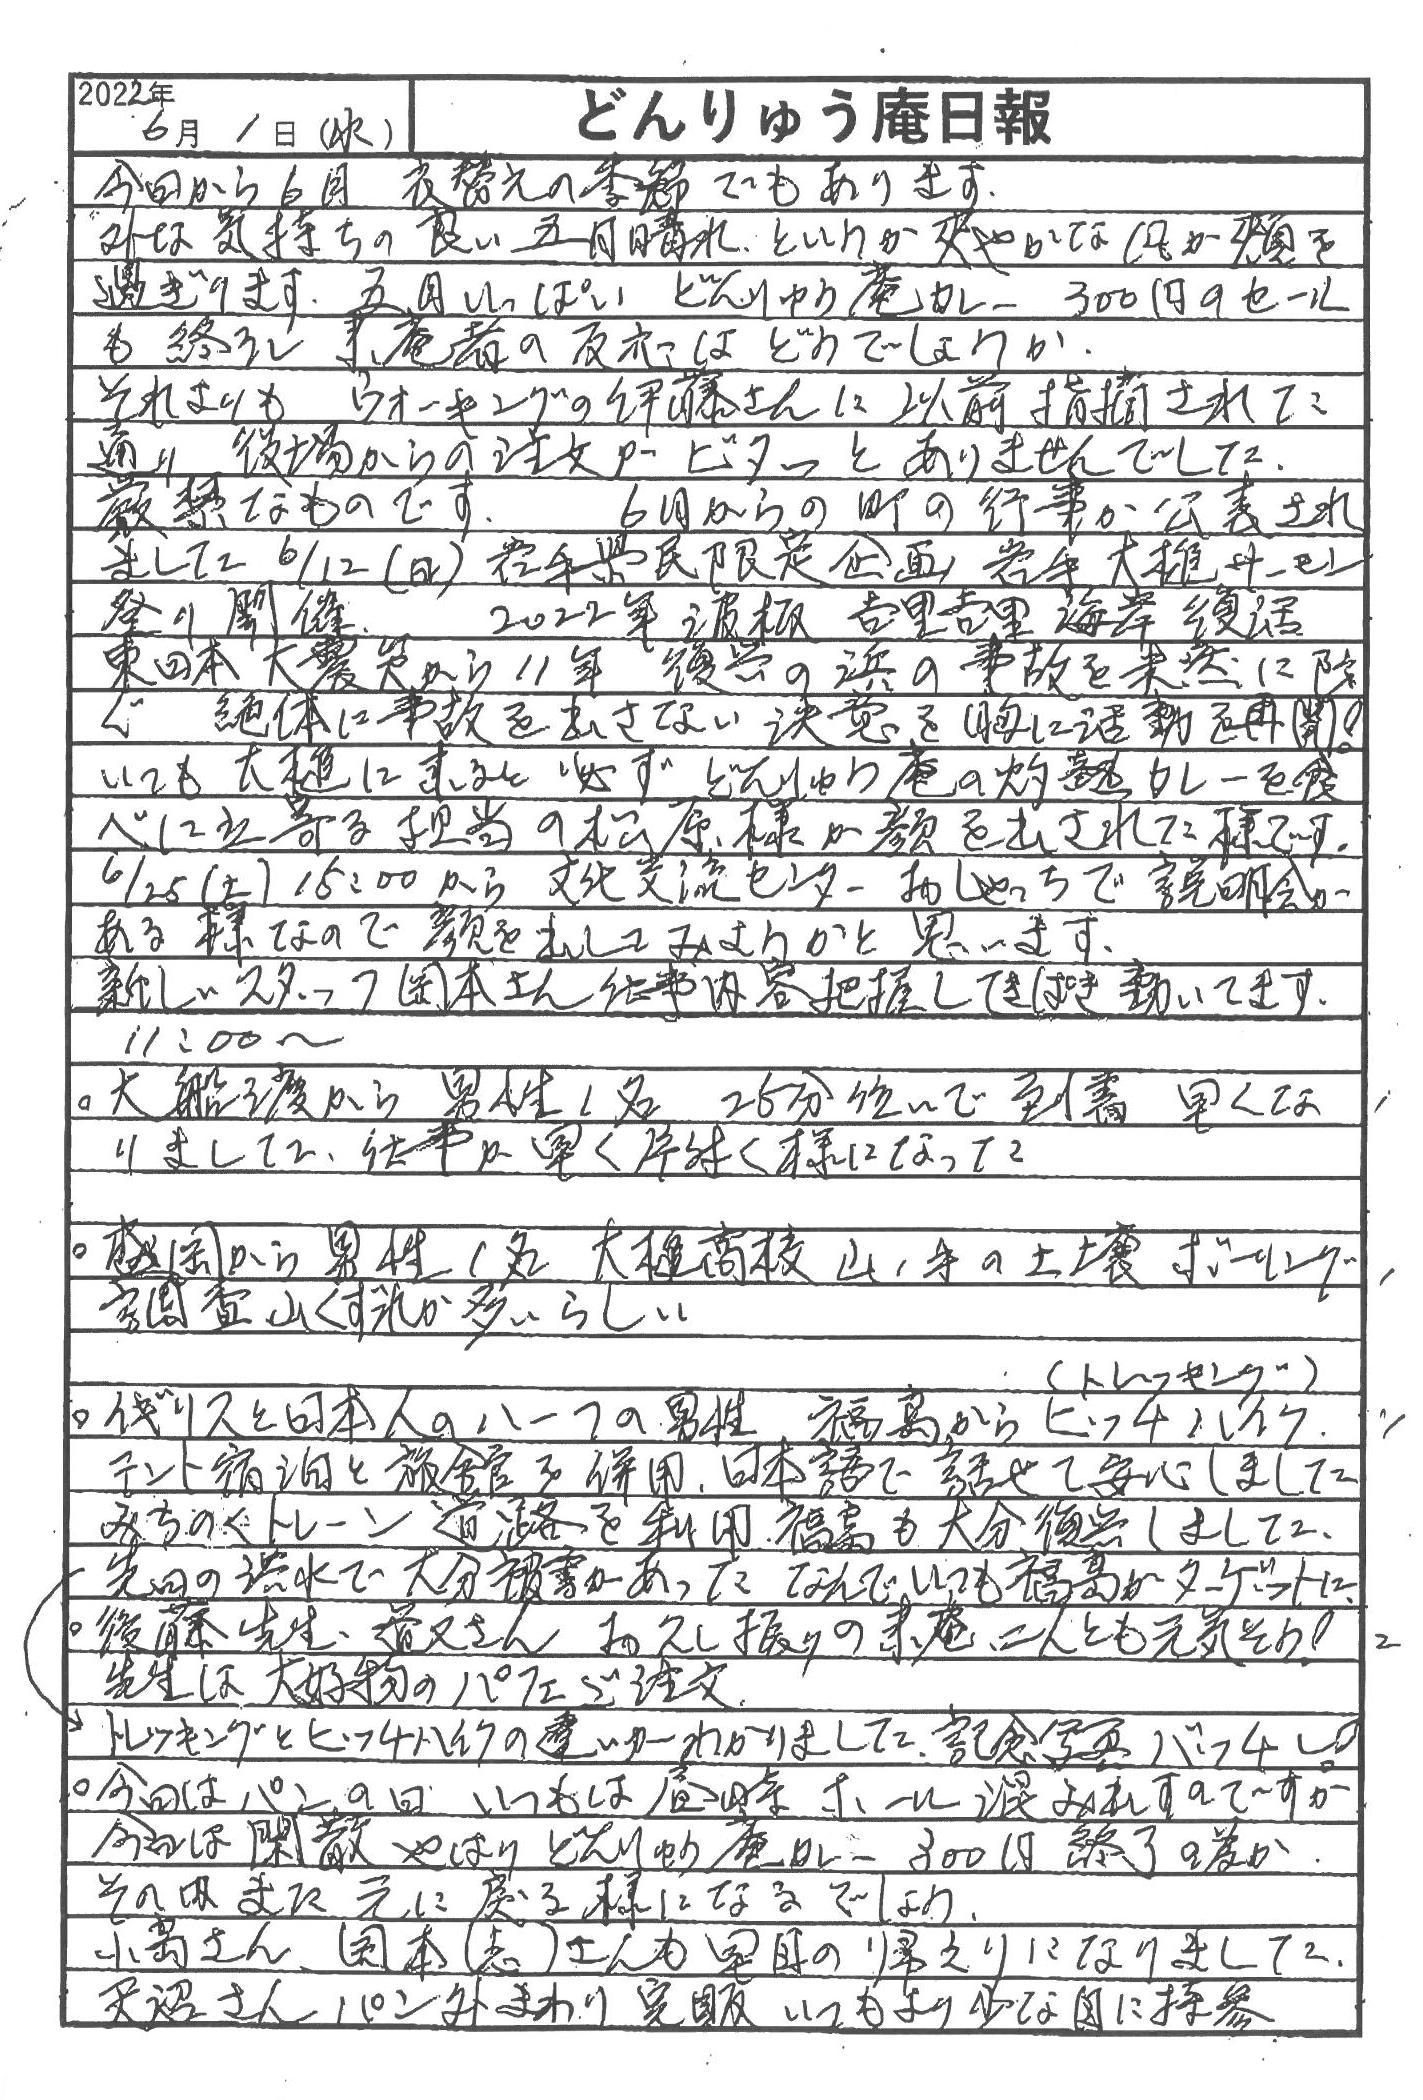 2022年
6月 1日(水)
どんりゅう庵日報
今日から6月 衣替えの季節でもあります.
みな気持ちの良い五月晴れ.というか爽やかな風が頬を
過ぎります. 五月いっぱい どんりゅう庵カレー 300円のセール
も終了し 来庵者の反応はどうでしょうか.
それよりも ウオーキングの伊藤さんに以前指摘されてた
通り 役場からの注文が ピターっと ありませんでした.
厳禁なものです. 6月からの町の行事が公表され
ました 6/12(日) 岩手県民限定企画 岩手大槌サーモン
祭り開催. 2022年 波板 吉里吉里 海岸復活
東日本大震災から11年 復興の浜の事故を未然に防
ぐ 絶体に事故を出さない決意を胸に活動を再開!
いつも大槌に来ると 必ず どんりゅう庵の カレーを食
べに立寄る担当の松原様が顔を出された様です.
6/25(土) 15:00から 文化交流センター おしゃっちで説明会が
ある様なので顔を出してみようかと思います.
新しいスタッフ岡本さん 仕事内容把握してきぱき動いてます.
11:00〜
○大船渡から 男性1名 25分位いで到着 早くな
りました、仕事が早く片付く様になった
○盛岡から男性1名 大槌高校 山手の土壌ボーリング
調査 山くずれが多いらしい
(トレッキング)
○イギリスと日本人のハーフの男性 福島からヒッチハイク.
テント宿泊と旅館を併用.日本語で話せて安心しました
みちのくトレーン道路を利用.福島も大分復興しました、
先回の で大分被害があった なんでいつも福島がターゲットに、
○後藤先生、 さん お久し振りの来庵、二人とも元気そう!
先生は大好物のパフェご注文
トレッキングとヒッチハイクの違いがわかりました.記念写真バッチし!
○今日はパンの日 いつもは昼時 ホール混み出すのですが
今日は閑散 やはりどんりゅう庵カレー 300円終了の差か.
その内また元に戻る様になるでしょう.
小高さん、岡本(志)さんも早目の帰えりになりました.
天沼さん パン外まわり完販 いつもより少な目に持参